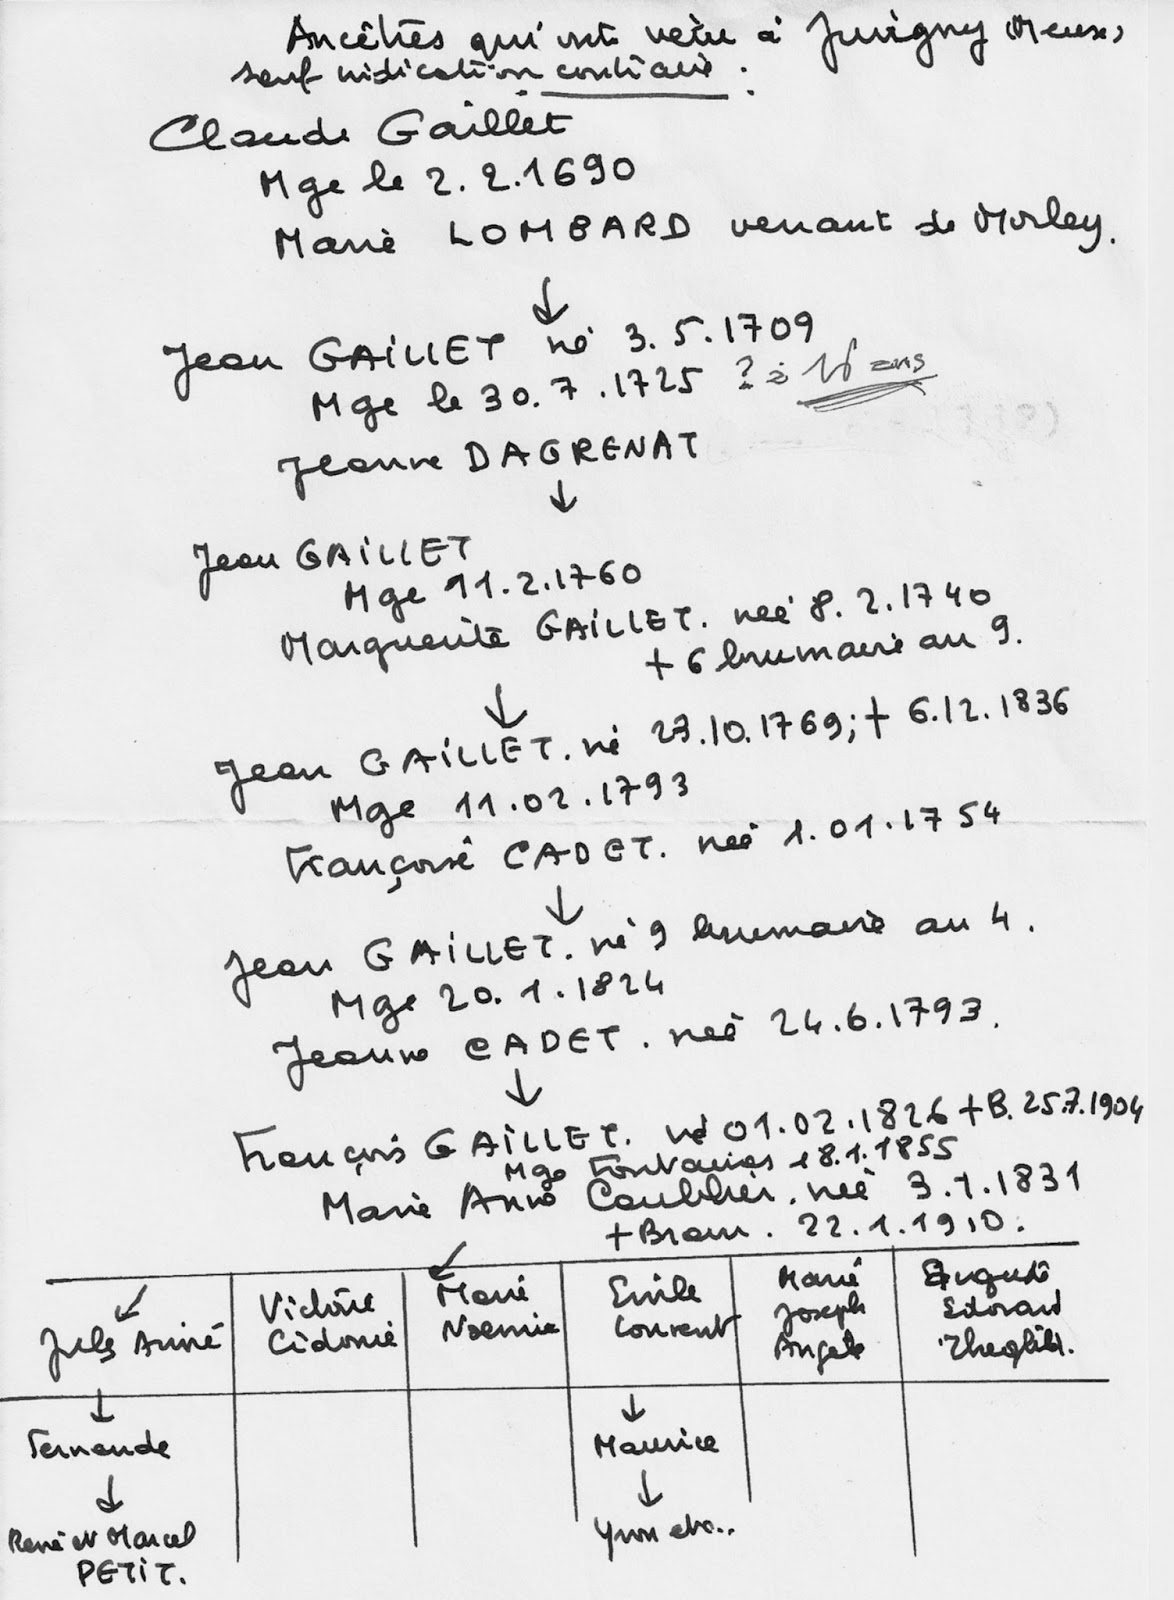 Ancêtres qui ont vécu à Juvigny (Meuse)
sauf indication contraire :
Claude Gaillet
Mge le 2.2.1690
Marie LOMBARD venant de Morley.
Jean GAILLET né 3.5.1709
Mge le 30.7.1725 ? à 16 ans
Jeanne DAGRENAT
Jean GAILLET
Mge 11.2.1760
Marguerite GAILLET. née 8.2.1740
+ 6 brumaire an 9.
Jean GAILLET. né 27.10.1769; + 6.12.1836
Mge 11.02.1793
Françoise CADET. née 1.01.1754
Jean GAILLET. né 9 brumaire an 4.
Mge 20.1.1824
Jeanne CADET. née 24.6.1793.
François GAILLET. né 01.02.1826 + B. 25.7.1904
Mge Fontaines 18.1.1855
Marie Anne née 3.1.1831
+ 22.1.1910.
Jules Aimé
Victoire
Cidonie
Marie
Noemie
Emile
Laurent
Marie
Joseph
Angèle
Auguste
Edouard
Fernande
René et Marcel
PETIT.
Maurice
Yvon etc..